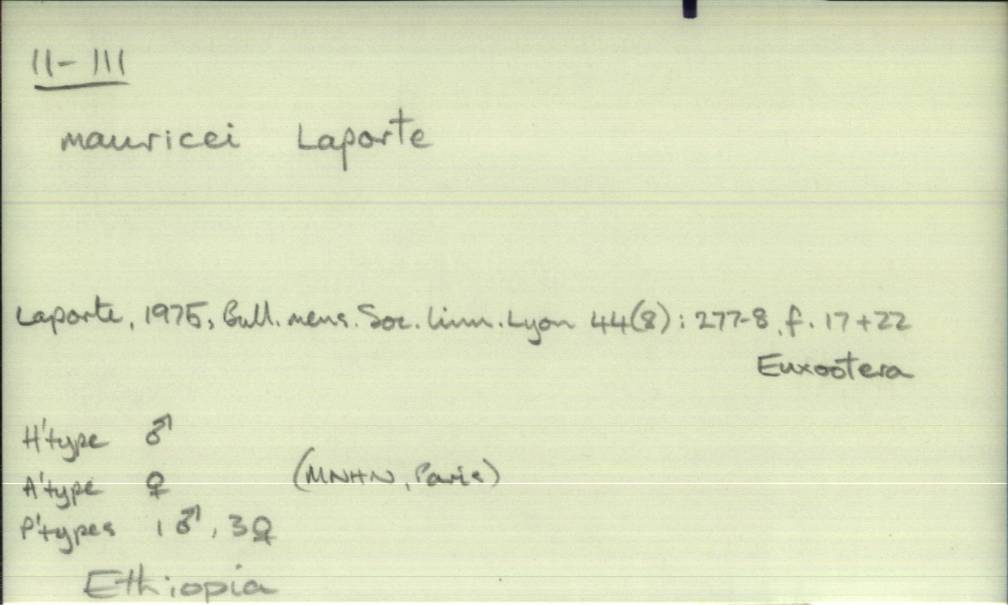 II-III
mauricei Laporte
Laporte, 1975, Bull. mens. Soc. linn. Lyon 44(8): 277-8, f. 17+22
Euxootera
H'type ♂
A'type ♀ (MNHN, Paris)
P'types 1♂, 3♀
Ethiopia